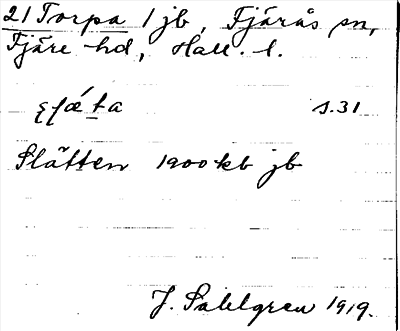 21 Torpa 1 jb, Fjärås sn,
Fjäre hd, Hall. l.
s.31
Slätten 1900 kb jb
J. Sahlgren 1919.